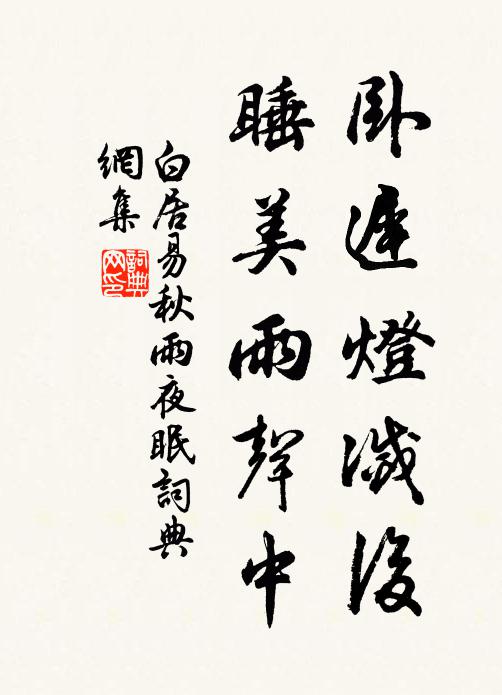 卧遲燈滅後
睡美雨聲中
白居易秋雨夜眠詞典
網集
詞典
网印